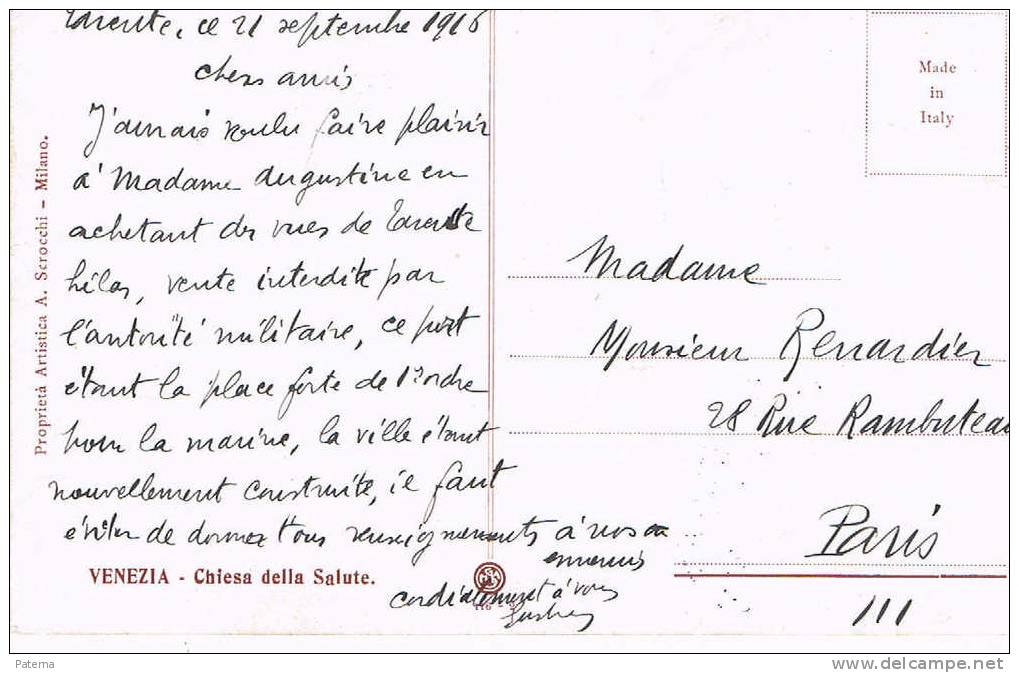 Tarente, ce 21 septembre 1916
chers amis
J'aurais voulu faire plaisir
à Madame Augustine en
achetant des vues de Tarente
hélas, vente interdite par
l'autorité militaire, ce port
étant la place forte de 1er ordre
pour la marine, la ville étant
nouvellement construite, il faut
éviter de donner tous renseignements à nos
ennemis
cordialement à vous
Made
in
Italy
Madame
Monsieur Renardier
28 Rue Rambuteau
Paris
111
Proprietà Artistica A. Scrocchi - Milano.
VENEZIA - Chiesa della Salute.
Paterna
http://www.delcampe.net